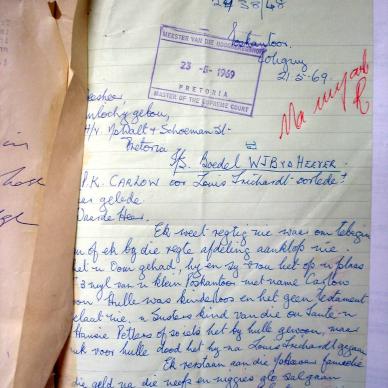 2738/48
Poskantoor
Coligny
21-5-69.
MEESTER VAN DIE HOOGGEREGSHOF
23 -5- 1969
PRETORIA
MASTER OF THE SUPREME COURT
Meesheer
gebou,
H/v. McWalt + Schoeman St.
Pretoria
I/S. Boedel W J B v d HEEVER.
P.K. CARLOW oor Louis Trichardt-oorlede?
jaar gelede
Waarde Heer.
Ek weet regtig nie waar om te begin
en of ek by die regte afdeling aanklop nie.
het 'n Oom gehad, hy en sy vrou het op 'n plaas
3 myl van 'n klein Poskantoor met name Carlow
woon? Hulle was kinderloos en het geen testament
gelaat nie. 'n Susters kind van die ou Tante - 'n
Hansie Peters of so iets het by hulle gewoon, maar
ook voor hulle dood het hy na Louis Trichardt gegaan
Ek verstaan aan die familie
die geld wat die neefs en niggies glo sal gaan